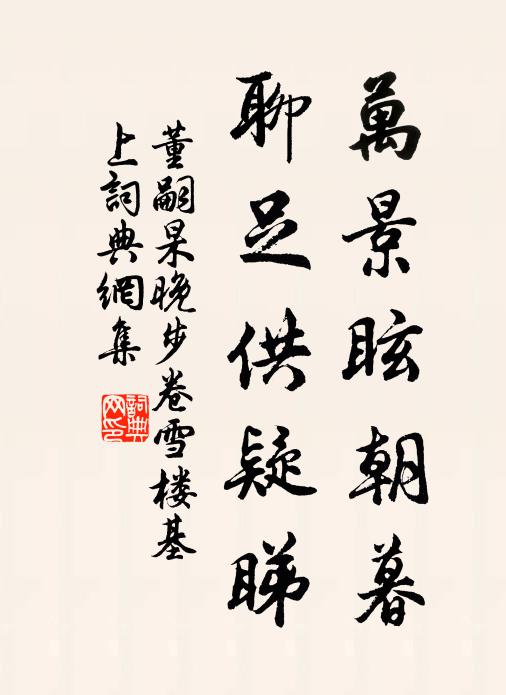 萬景眩朝暮
聊足供疑睇
董嗣杲晚步卷雪楼基
上詞典網集
詞典网印